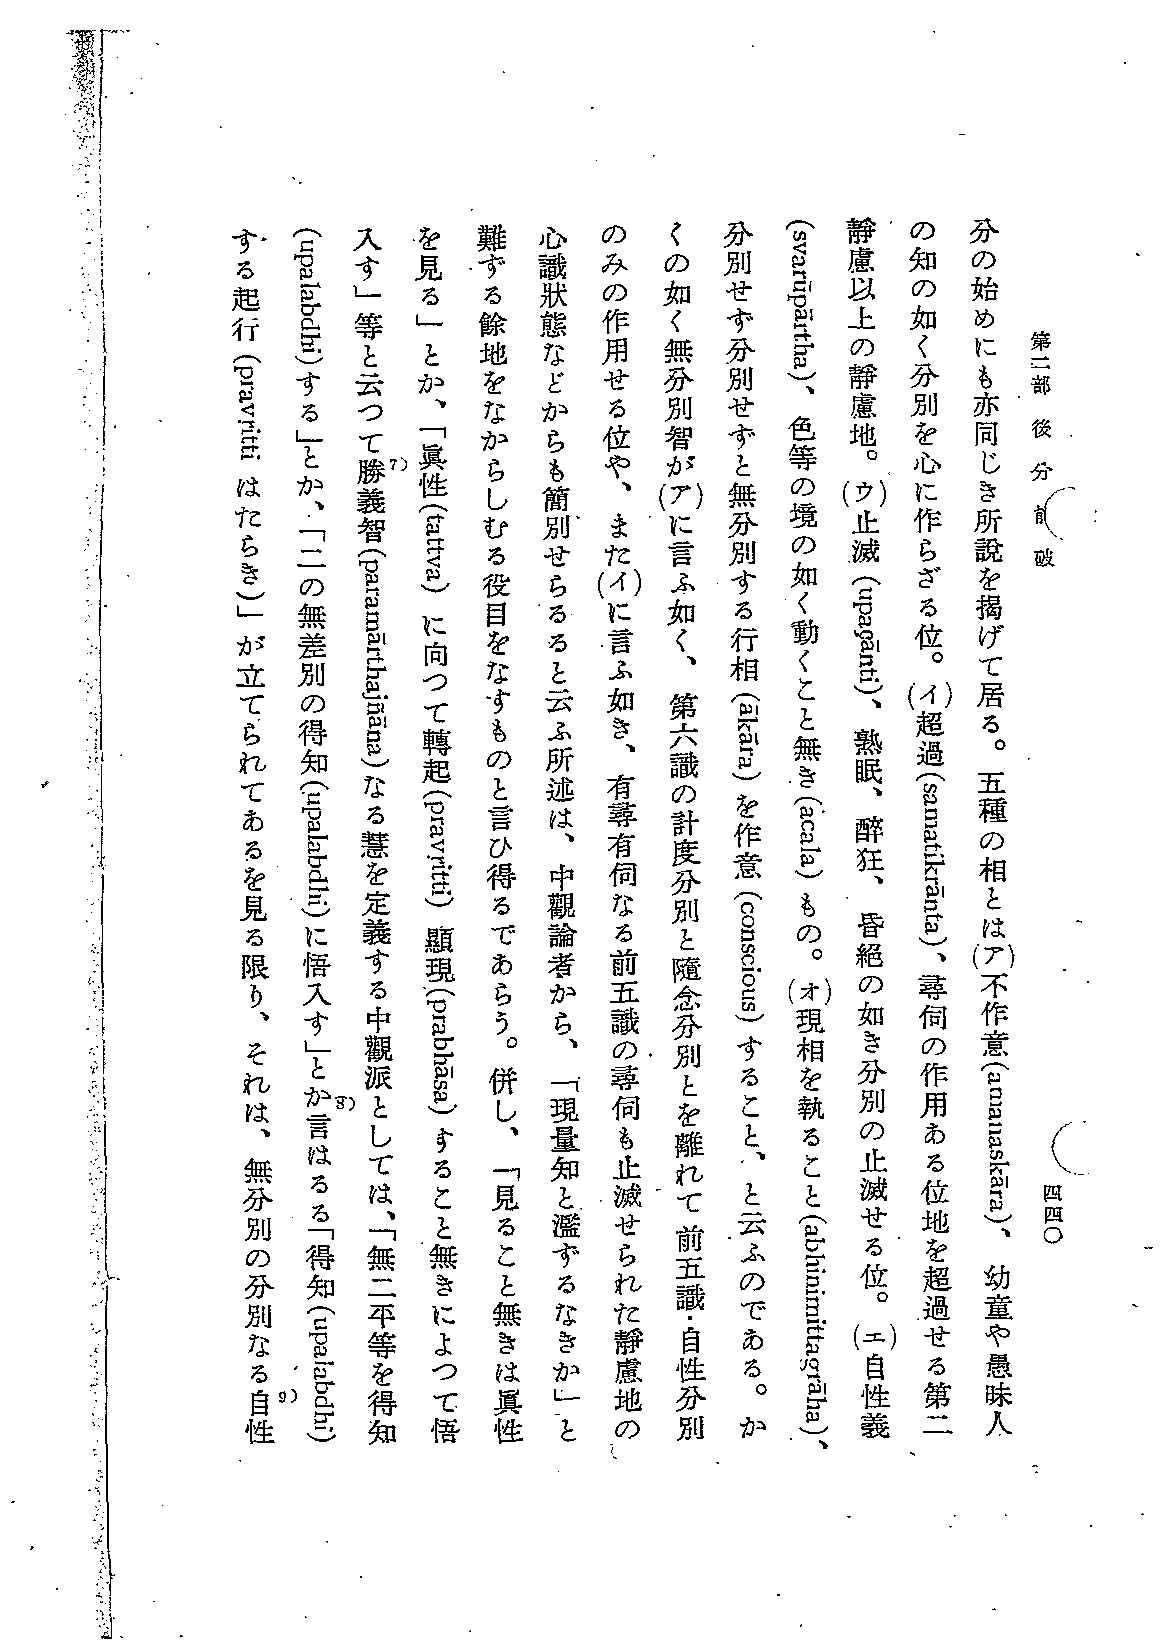 第二部　後分　前破
四四〇
分の始めにも亦同じき所說を揭げて居る。五種の相とは(ア)不作意(amanaskāra)、幼童や愚昧人
の知の如く分別を心に作らざる位。(イ)超過(samatikrānta)、尋伺の作用ある位地を超過せる第二
靜慮以上の靜慮地。(ウ)止滅(upaçānti)、熟眠、醉狂、昏絕の如き分別の止滅せる位。(エ)自性義
(svarūpārtha)、色等の境の如く動くこと無き(acala)もの。(オ)現相を執ること(abhinimittagrāha)、
分別せず分別せずと無分別する行相(ākāra)を作意(conscious)すること、と云ふのである。か
くの如く無分別智が(ア)に言ふ如く、第六識の計度分別と隨念分別とを離れて前五識・自性分別
のみの作用せる位や、また(イ)に言ふ如き、有尋有伺なる前五識の尋伺も止滅せられた靜慮地の
心識狀態などからも簡別せらるると云ふ所述は、中觀論者から、「現量知と濫ずるなきか」と
難ずる餘地をなからしむる役目をなすものと言ひ得るであらう。併し、「見ること無きは眞性
を見る」とか、「眞性(tattva)に向つて轉起(pravṛitti)顯現(prabhāsa)すること無きによつて悟
入す」等と云つて勝義智(paramārthajñāna)なる慧を定義する中觀派としては、「無二平等を得知
(upalabdhi)する」とか、「二の無差別の得知(upalabdhi)に悟入す」とか言はるる「得知(upalabdhi)
する起行(pravṛitti はたらき)」が立てられてあるを見る限り、それは、無分別の分別なる自性
7)
8)
9)